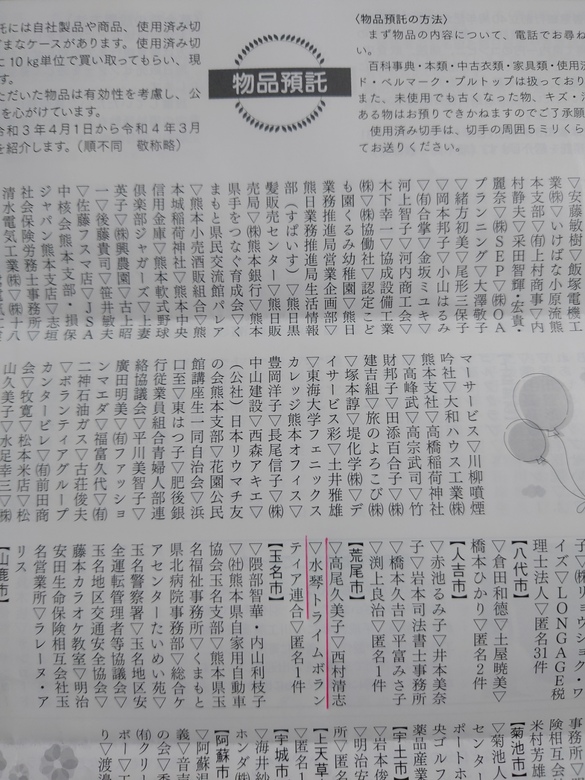 託には自社製品や商品、使用済み切
まなケースがあります。使用済み切
に10kg単位で買い取ってもらい、現
す。
ただいた物品は有効性を考慮し、公
を心がけています。
令和3年4月1日から令和4年3月
を紹介します。（順不同　敬称略）
物品預託
〈物品預託の方法〉
まず物品の内容について、電話でお尋ね
い。
百科事典・本類・中古衣類・家具類・使用済
ド・ベルマーク・プルトップは扱っており
また、未使用でも古くなった物、キズ・汚
ある物はお預りできかねますのでご了承願
使用済み切手は、切手の周囲5ミリくら
てお送りください。
▽安藤敏樹▽飯塚電機工
業㈱▽いけばな小原流熊
本支部▽㈲上村商事▽内
村静夫▽采田智輝・宏貴・
麗奈▽㈱SEP▽㈱OA
プランニング▽大澤敬子
▽緒方初美▽尾形三保子
▽岡本邦子▽小山はるみ
▽㈲合掌▽金坂ミユキ▽
河上智子▽河内商工会▽
木下幸一▽協成設備工業
㈱▽㈱協働社▽認定こど
も園くるみ幼稚園▽熊日
業務推進局営業企画部▽
熊日業務推進局生活情報
部（すぱいす）▽熊日黒
髪販売センター▽熊日販
売局▽㈱熊本銀行▽熊本
県手をつなぐ育成会▽く
まもと県民交流館パレア
▽熊本小売酒販組合▽熊
本城稲荷神社▽熊本中央
信用金庫▽熊本軟式野球
倶楽部ジャガーズ▽上妻
英子▽㈱興農園▽古上昭
一▽後藤貴司▽笹井敏夫
▽佐藤フスマ店▽JSA
中核会熊本支部▽損保
ジャパン熊本支店▽志垣
社会保険労務士事務所▽
清水電気工業㈱▽㈱十八
マーサービス▽川柳噴煙
吟社▽大和ハウス工業㈱
熊本支社▽高橋稲荷神社
▽高峰武▽高宗武司▽竹
財邦子▽田添百合子▽㈱
建吉組▽旅のよろこび㈱
▽塚本諄▽堤化学㈱▽デ
イサービス彩▽土井雅雄
▽東海大学フェニックス
カレッジ熊本オフィス▽
豊岡洋子▽長尾信子▽㈱
中山建設▽西森アキエ▽
（公社）日本リウマチ友
の会熊本支部▽花園公民
館講座生一同自治会▽浜
口至▽東はつ子▽肥後銀
行従業員組合青婦人部連
絡協議会▽平川美智子▽
廣田明美▽㈲ファッショ
ンマエダ▽福富久代▽㈲
二神石油ガス▽古荘俊夫
▽ボランティアグループ
カンタービレ▽㈲前田商
会▽牧寛▽松本米店▽松
山久美子▽水足幸三▽㈱
子▽㈱リョウショク・ワ
イズ▽LONGAGE税
理士法人▽匿名31件
【八代市】
▽倉田和徳▽土屋暁美▽
橋本ひかり▽匿名2件
【人吉市】
▽赤池るみ子▽井本美奈
子▽岩本司法書士事務所
▽橋本久吉▽平冨みさ子
▽渕上良治▽匿名1件
【荒尾市】
▽高尾久美子▽西村清志
▽水琴トライムボラン
ティア連合▽匿名1件
【玉名市】
▽隈部智華・内山利枝子
▽㈳熊本県自家用自動車
協会玉名支部▽熊本県玉
名福祉事務所▽くまもと
県北病院事務部▽総合ケ
アセンターたいめい苑▽
玉名警察署▽玉名地区安
全運転管理者等協議会▽
玉名地区交通安全協会▽
藤本カラオケ教室▽明治
安田生命保険相互会社玉
名営業所▽ラレーヌ・ア
リス
【山鹿市】
事務所▽
険相互会
米村芳雄
【菊池市】
▽菊池
センタ
ポート
央ゴルフ
薬品産業
【宇土市】
▽岩本保
▽明治安
所▽匿名
【上天草
▽匿名1
【宇城市】
▽海井紗
ホンダ㈱
【阿蘇市】
▽阿蘇温
義▽音声
の会▽秀
㈲クリー
ボー▽工
り▽渡邉